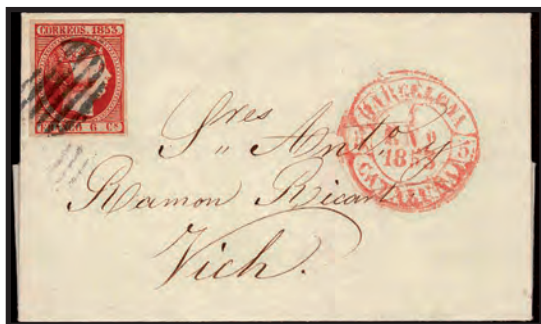 CORREOS. 1853.
FRANCO 6 Cs.
BARCELONA
1853
CATALUÑA
Sres " Anto. y
Ramon Ricart
Vich.